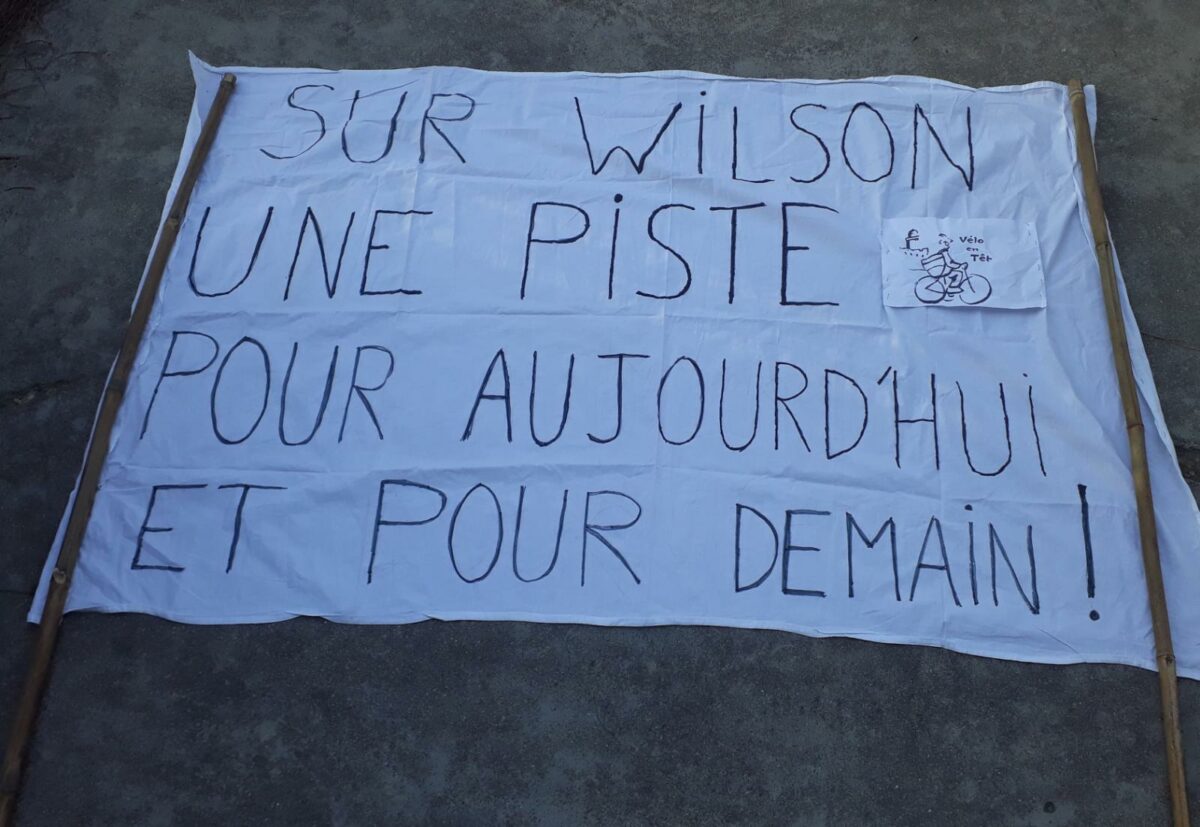 SUR WiLSON
UNE PiSTE
Vélo
en
Têt
POUR AUJOURD'HUi
ET POUR DEMAiN !